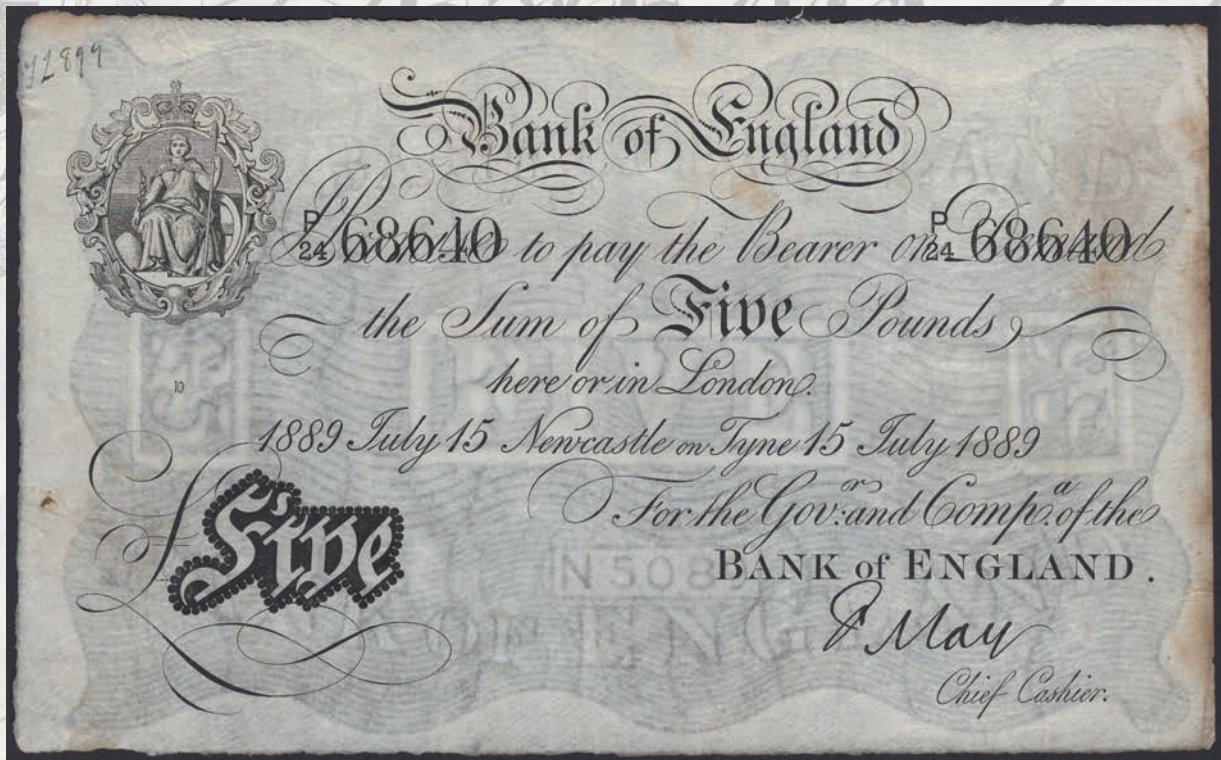 y1899
Bank of England
P/24 68640 P/24 68640
I Promise to pay the Bearer on Demand
the Sum of Five Pounds
here or in London.
10
1889 July 15 Newcastle on Tyne 15 July 1889
For the Gov.or and Comp.a of the
BANK of ENGLAND.
Five
N 508
OF ENG
F May
Chief Cashier.